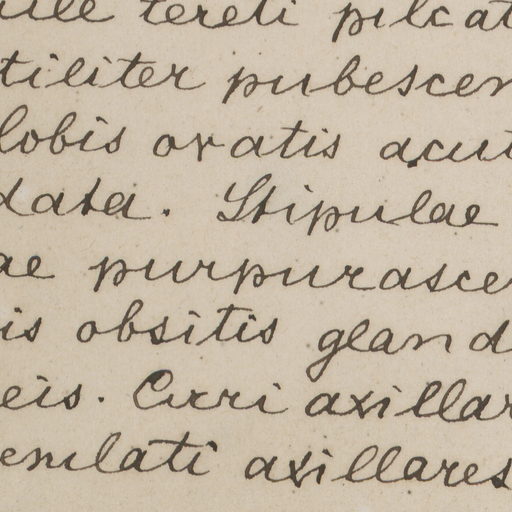 tereti pilcat
tiliter pubescen
lobis ovatis acut
data. Stipulae
ae purpurasce
is obsitis gland
eis. Cirri axillar
enulati axillares